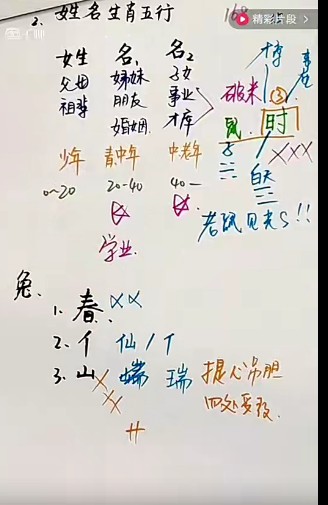 2. 姓名生肖五行
168
精彩片段 >
姓生 名1 名2
父母 姊妹 子女
祖辈 朋友 事业
婚姻 才库
破米
鼠 时
少年 青中年 中老年
0~20 20-40 40—
学业
XXX
白天
老鼠见光S!!
兔、
1. 春、XX
2. 亻 仙 / 亻
3. 山 瑞 提心吊胆
四处受敌.